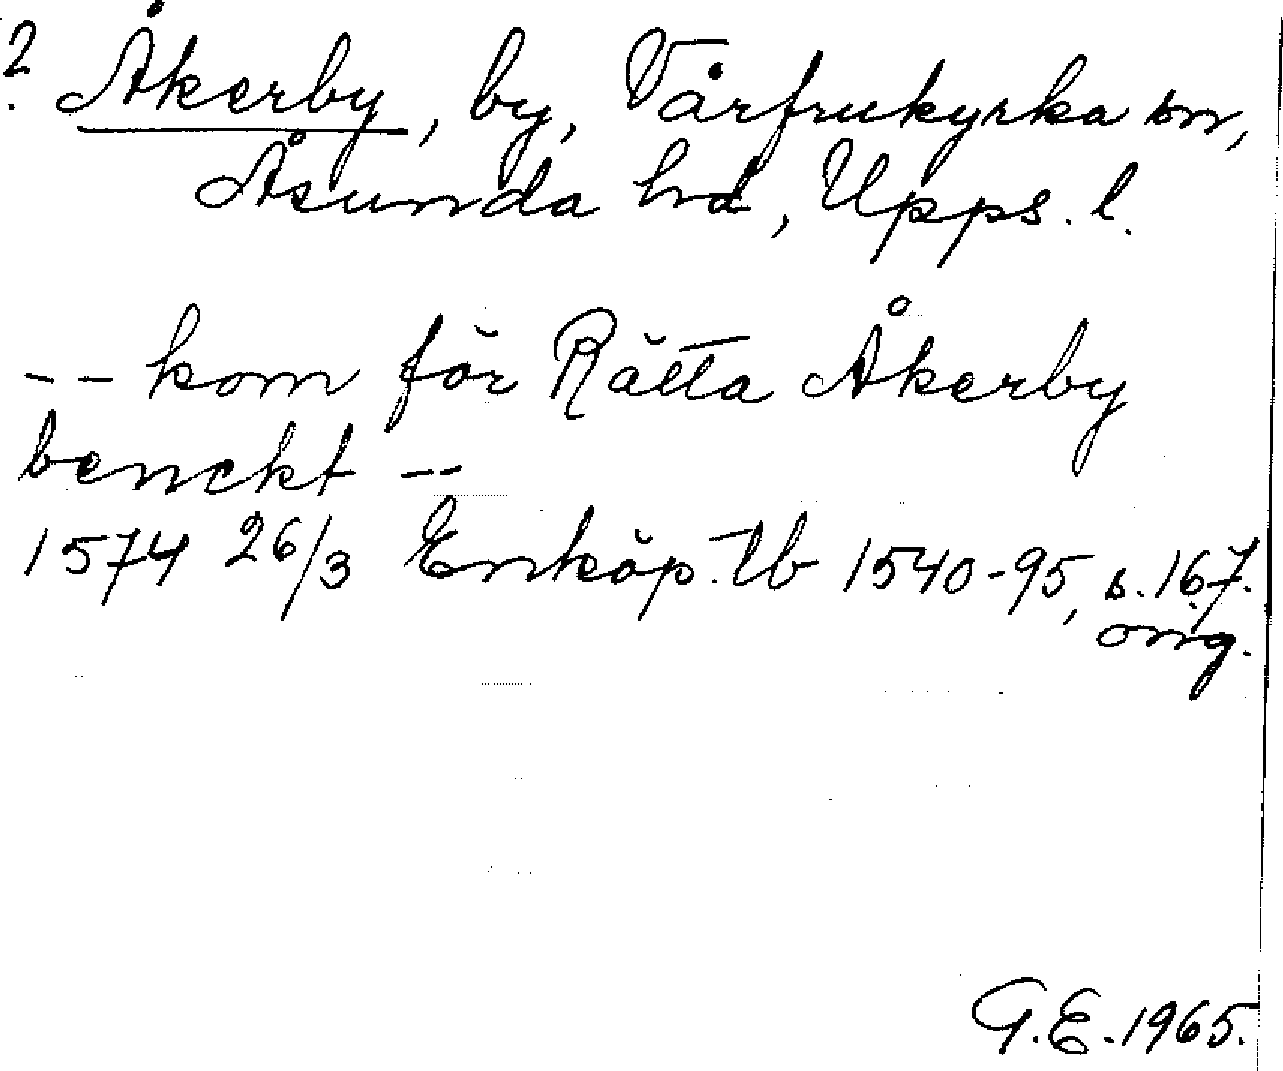 ? Åkerby, by, Vårfrukyrka sn,
Åsunda hd, Upps. l.
-- kom för Rätta Åkerby
benckt --
1574 26/3 Enköp. tb 1540-95, s. 167.
orig.
G.E. 1965.